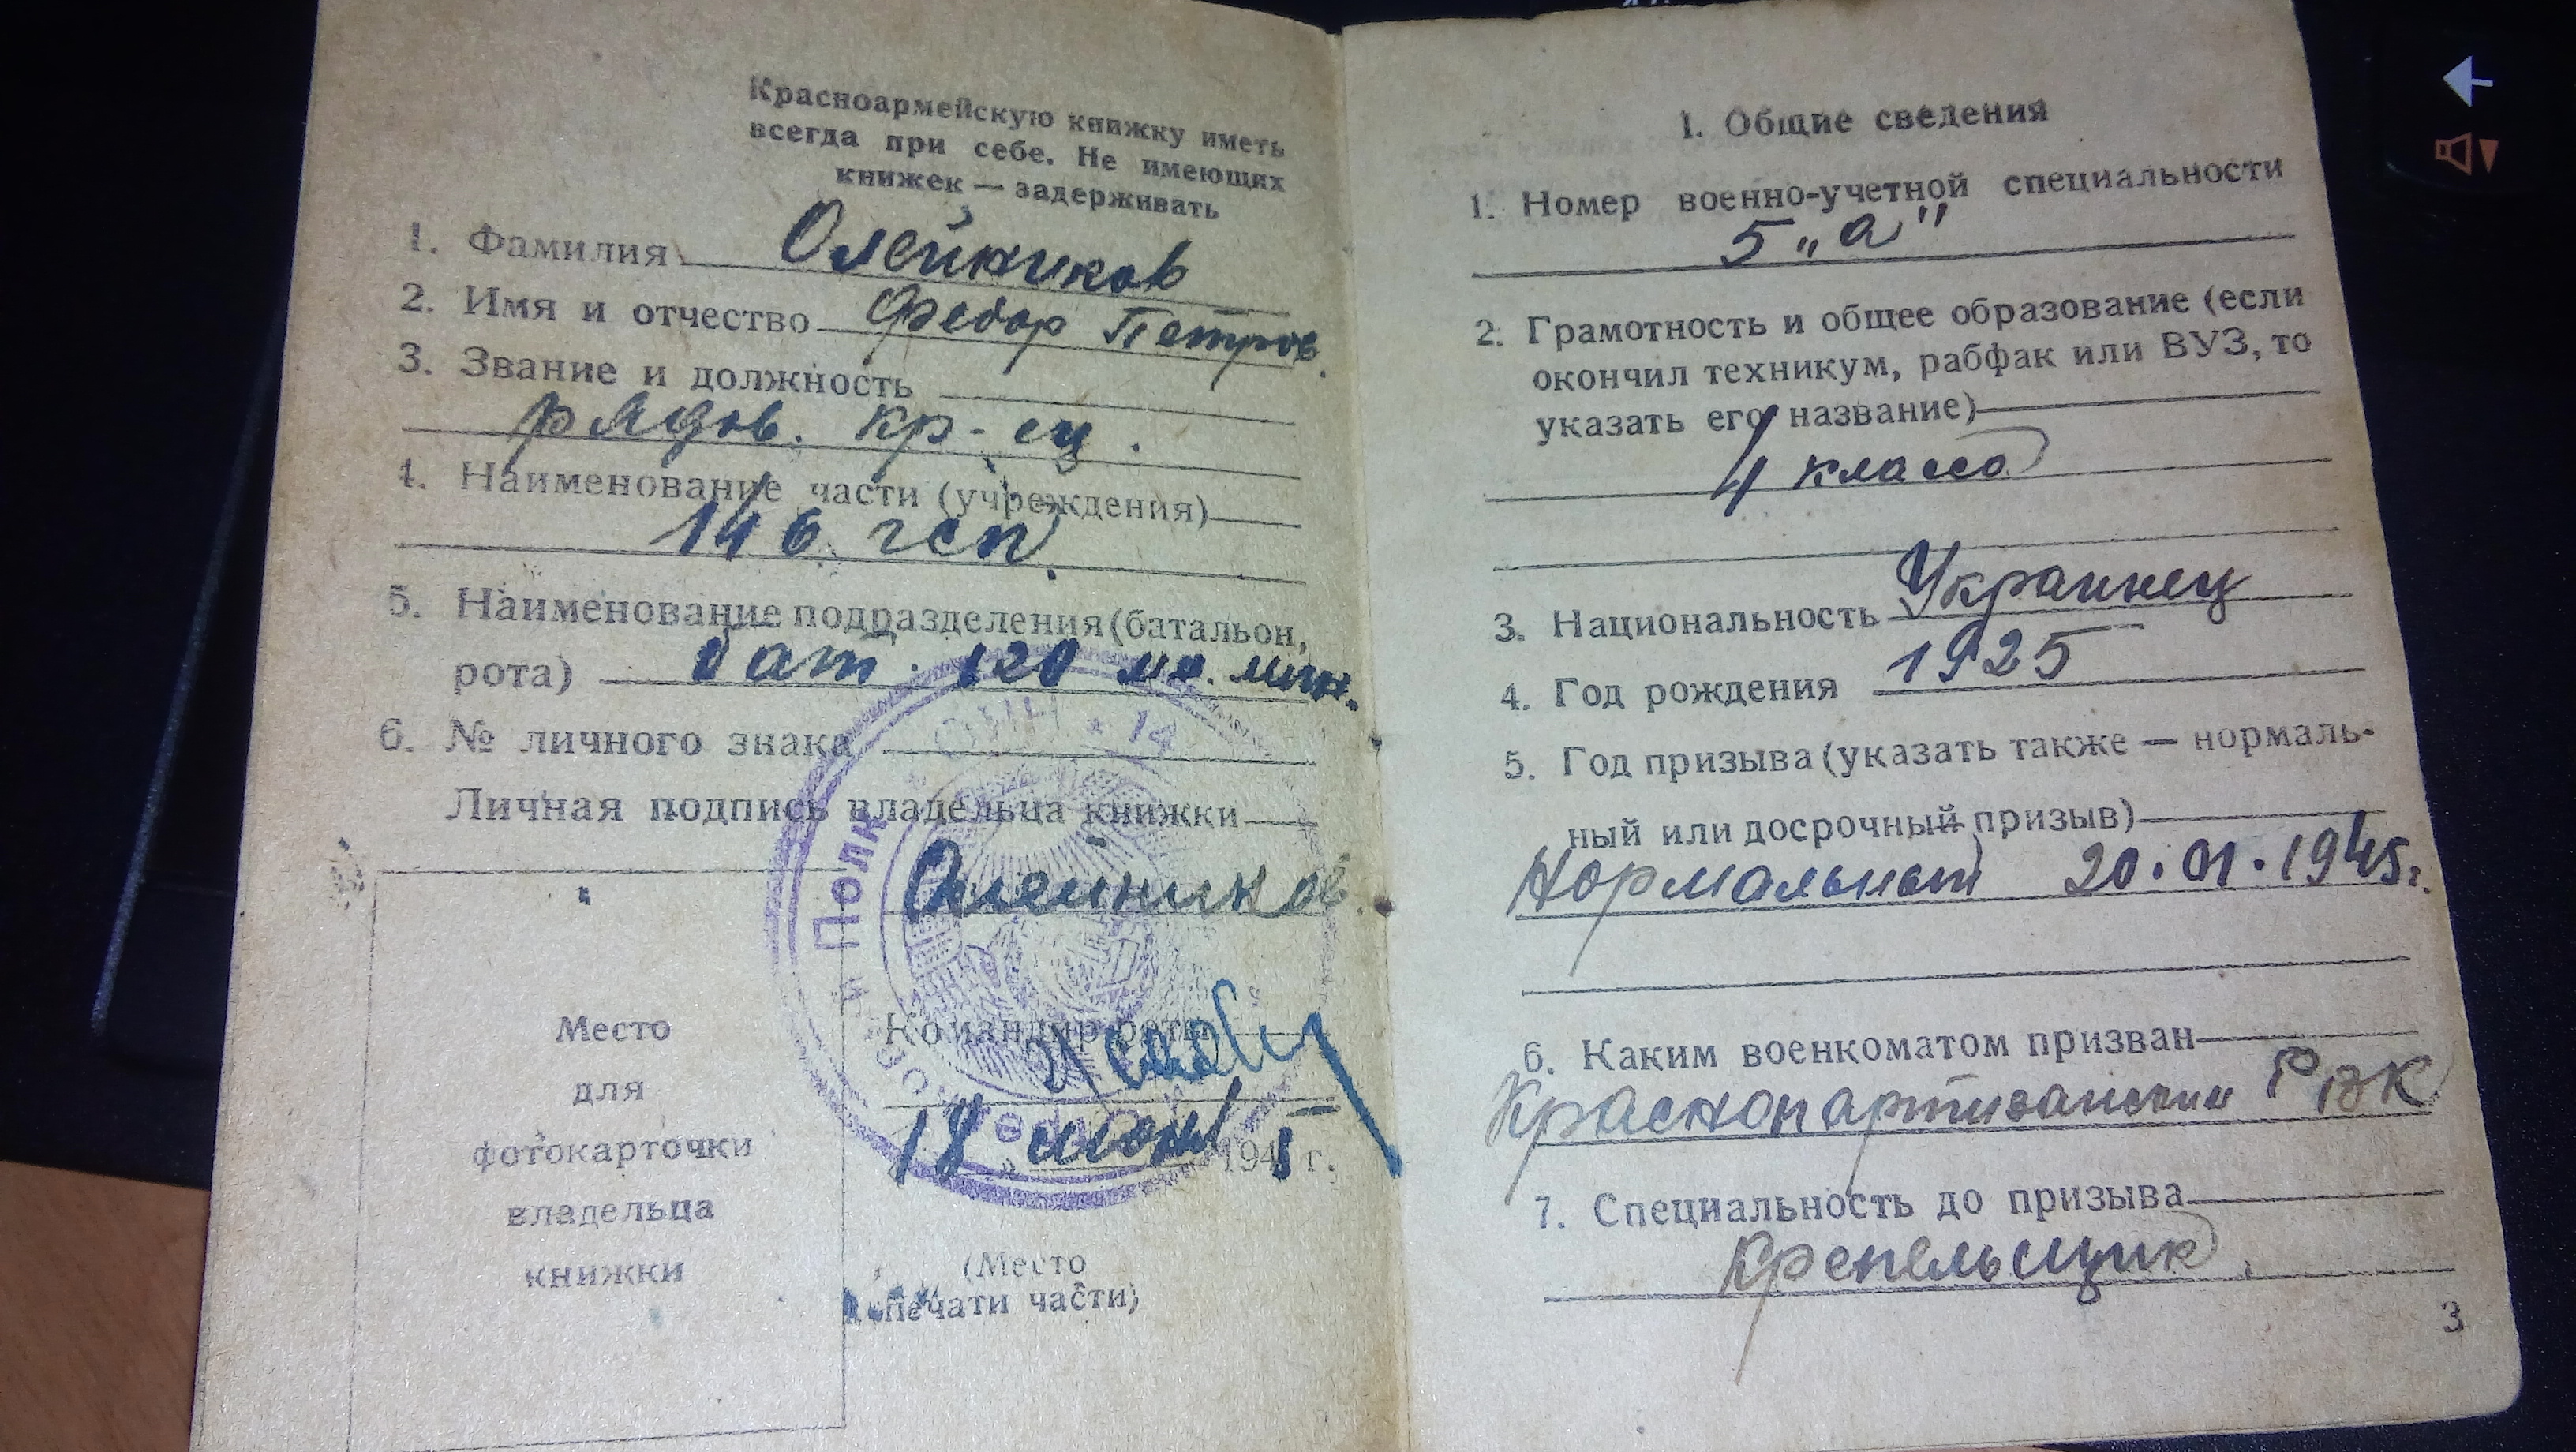 Красноармейскую книжку иметь
всегда при себе. Не имеющих
книжек — задерживать
1. Фамилия Олейников
2. Имя и отчество Федор Петров.
3. Звание и должность
рядов. кр-ец.
4. Наименование части (учреждения)
146 гсп.
5. Наименование подразделения (батальон,
рота) бат. 120 мм. мин.
6. № личного знака
Личная подпись владельца книжки
Олейников
Полк
Командир роты
18 июня 1945 г.
Место
для
фотокарточки
владельца
книжки
(Место
печати части)
1. Общие сведения
1. Номер военно-учетной специальности
5 „а"
2. Грамотность и общее образование (если
окончил техникум, рабфак или ВУЗ, то
указать его название)
4 класса
3. Национальность Украинец
4. Год рождения 1925
5. Год призыва (указать также — нормаль-
ный или досрочный призыв)
Нормальный 20.01.1945г.
6. Каким военкоматом призван
Краснопартизанский РВК
7. Специальность до призыва
Крепельщик.
3